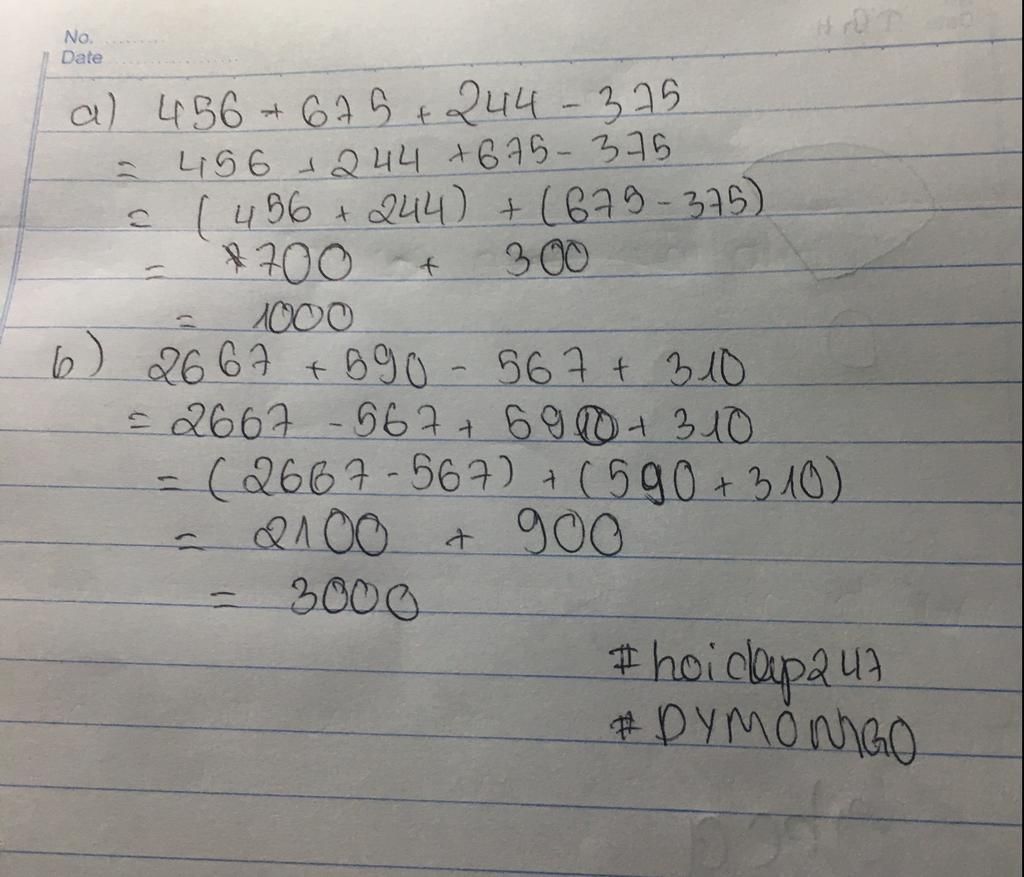 No.
Date
a) 456 + 675 + 244 - 375
= 456 + 244 + 675 - 375
= (456 + 244) + (675 - 375)
= 700 + 300
= 1000
b) 2667 + 590 - 567 + 310
= 2667 - 567 + 590 + 310
= (2667 - 567) + (590 + 310)
= 2100 + 900
= 3000
#hoidap247